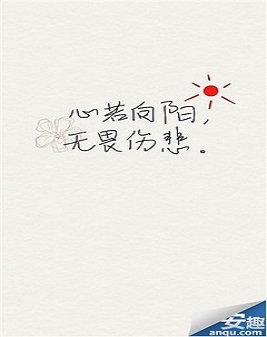 心若向阳，
无畏伤悲。
安趣
anqu.com